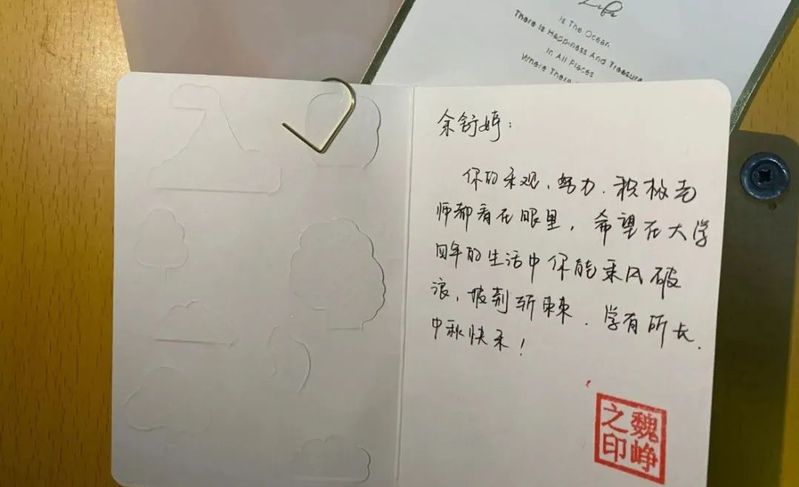 Life
Is The Ocean
There Is Happiness And Treasure
In All Places
Where There
余舒婷：
你的乐观、努力、积极老
师都看在眼里，希望在大学
四年的生活中你能乘风破
浪，披荆斩棘，学有所长.
中秋快乐！
魏峥
之印